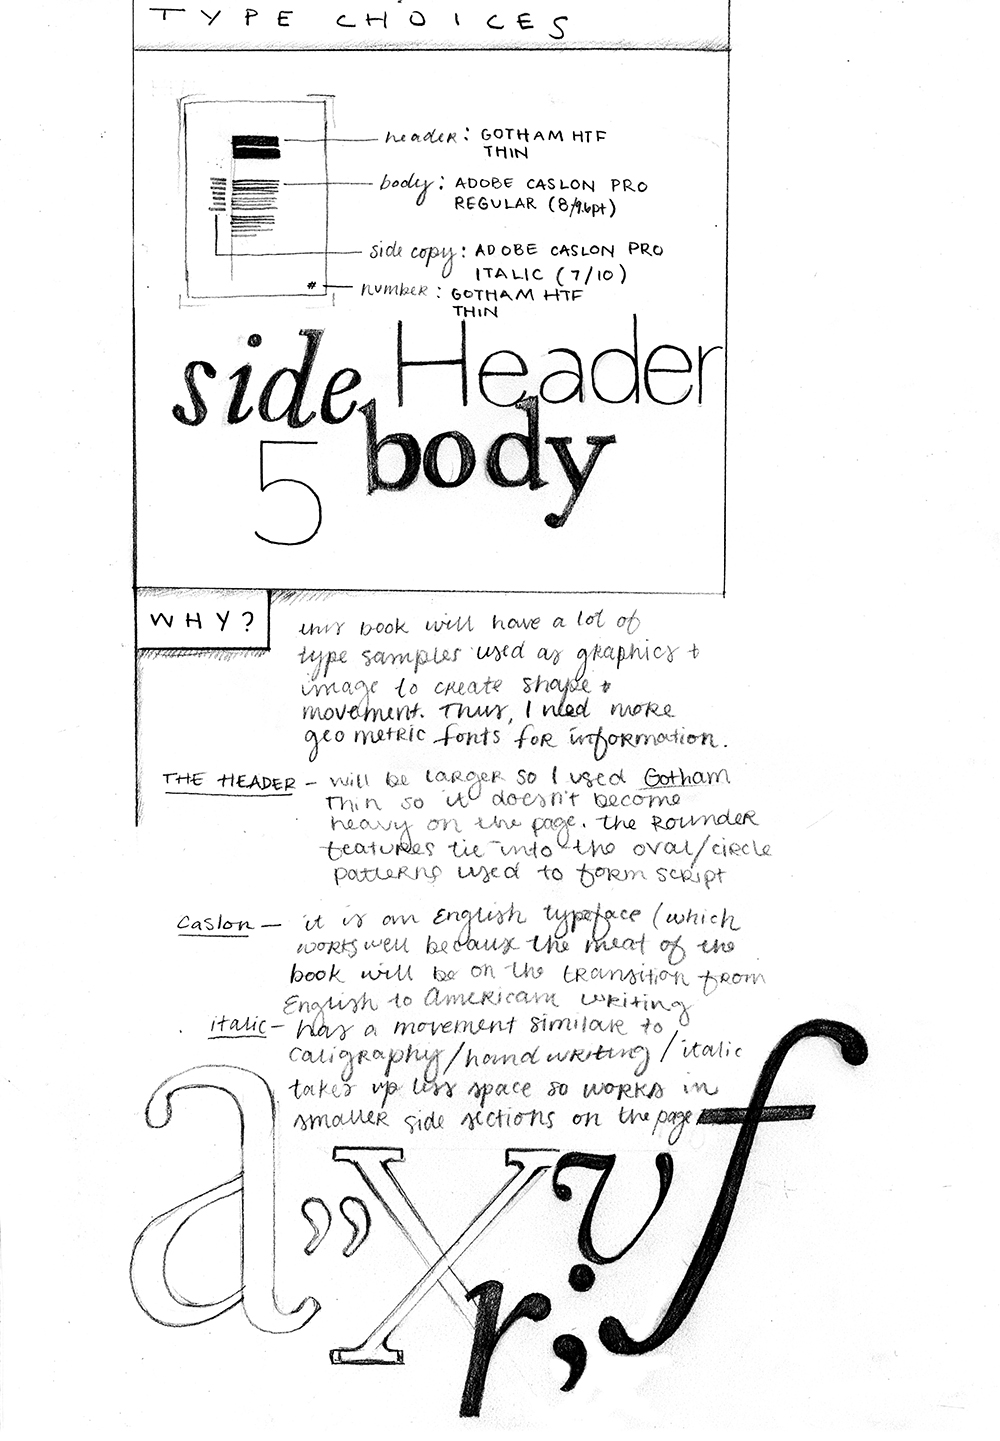 TYPE CHOICES
header: GOTHAM HTF
THIN
body: ADOBE CASLON PRO
REGULAR (8/9.6pt)
side copy: ADOBE CASLON PRO
ITALIC (7/10)
# number: GOTHAM HTF
THIN
side Header
body
5
WHY?
this book will have a lot of
type samples used as graphics +
image to create shape +
movement. Thus, I need more
geometric fonts for information.
THE HEADER - will be larger so I used Gotham
Thin so it doesn't become
heavy on the page. the Rounder
features tie into the oval/circle
patterns used to form script
Caslon - it is an English typeface (which
works well because the meat of the
book will be on the transition from
English to American writing
italic - has a movement similar to
caligraphy/handwriting/italic
takes up less space so works in
smaller side sections on the page
a ” x r v ; f